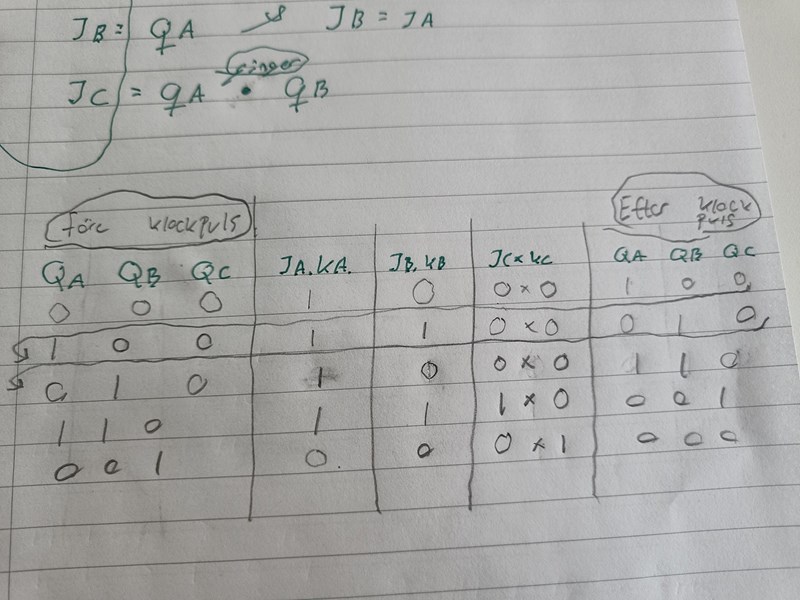 JB = QA JB = JA
gånger
JC = QA • QB
före klockpuls Efter klock puls
QA QB QC JA.KA. JB.KB JC×KC QA QB QC
0 0 0 1 0 0×0 1 0 0
1 0 0 1 1 0×0 0 1 0
0 1 0 1 0 0×0 1 1 0
1 1 0 1 1 1×0 0 0 1
0 0 1 0. 0 0×1 0 0 0